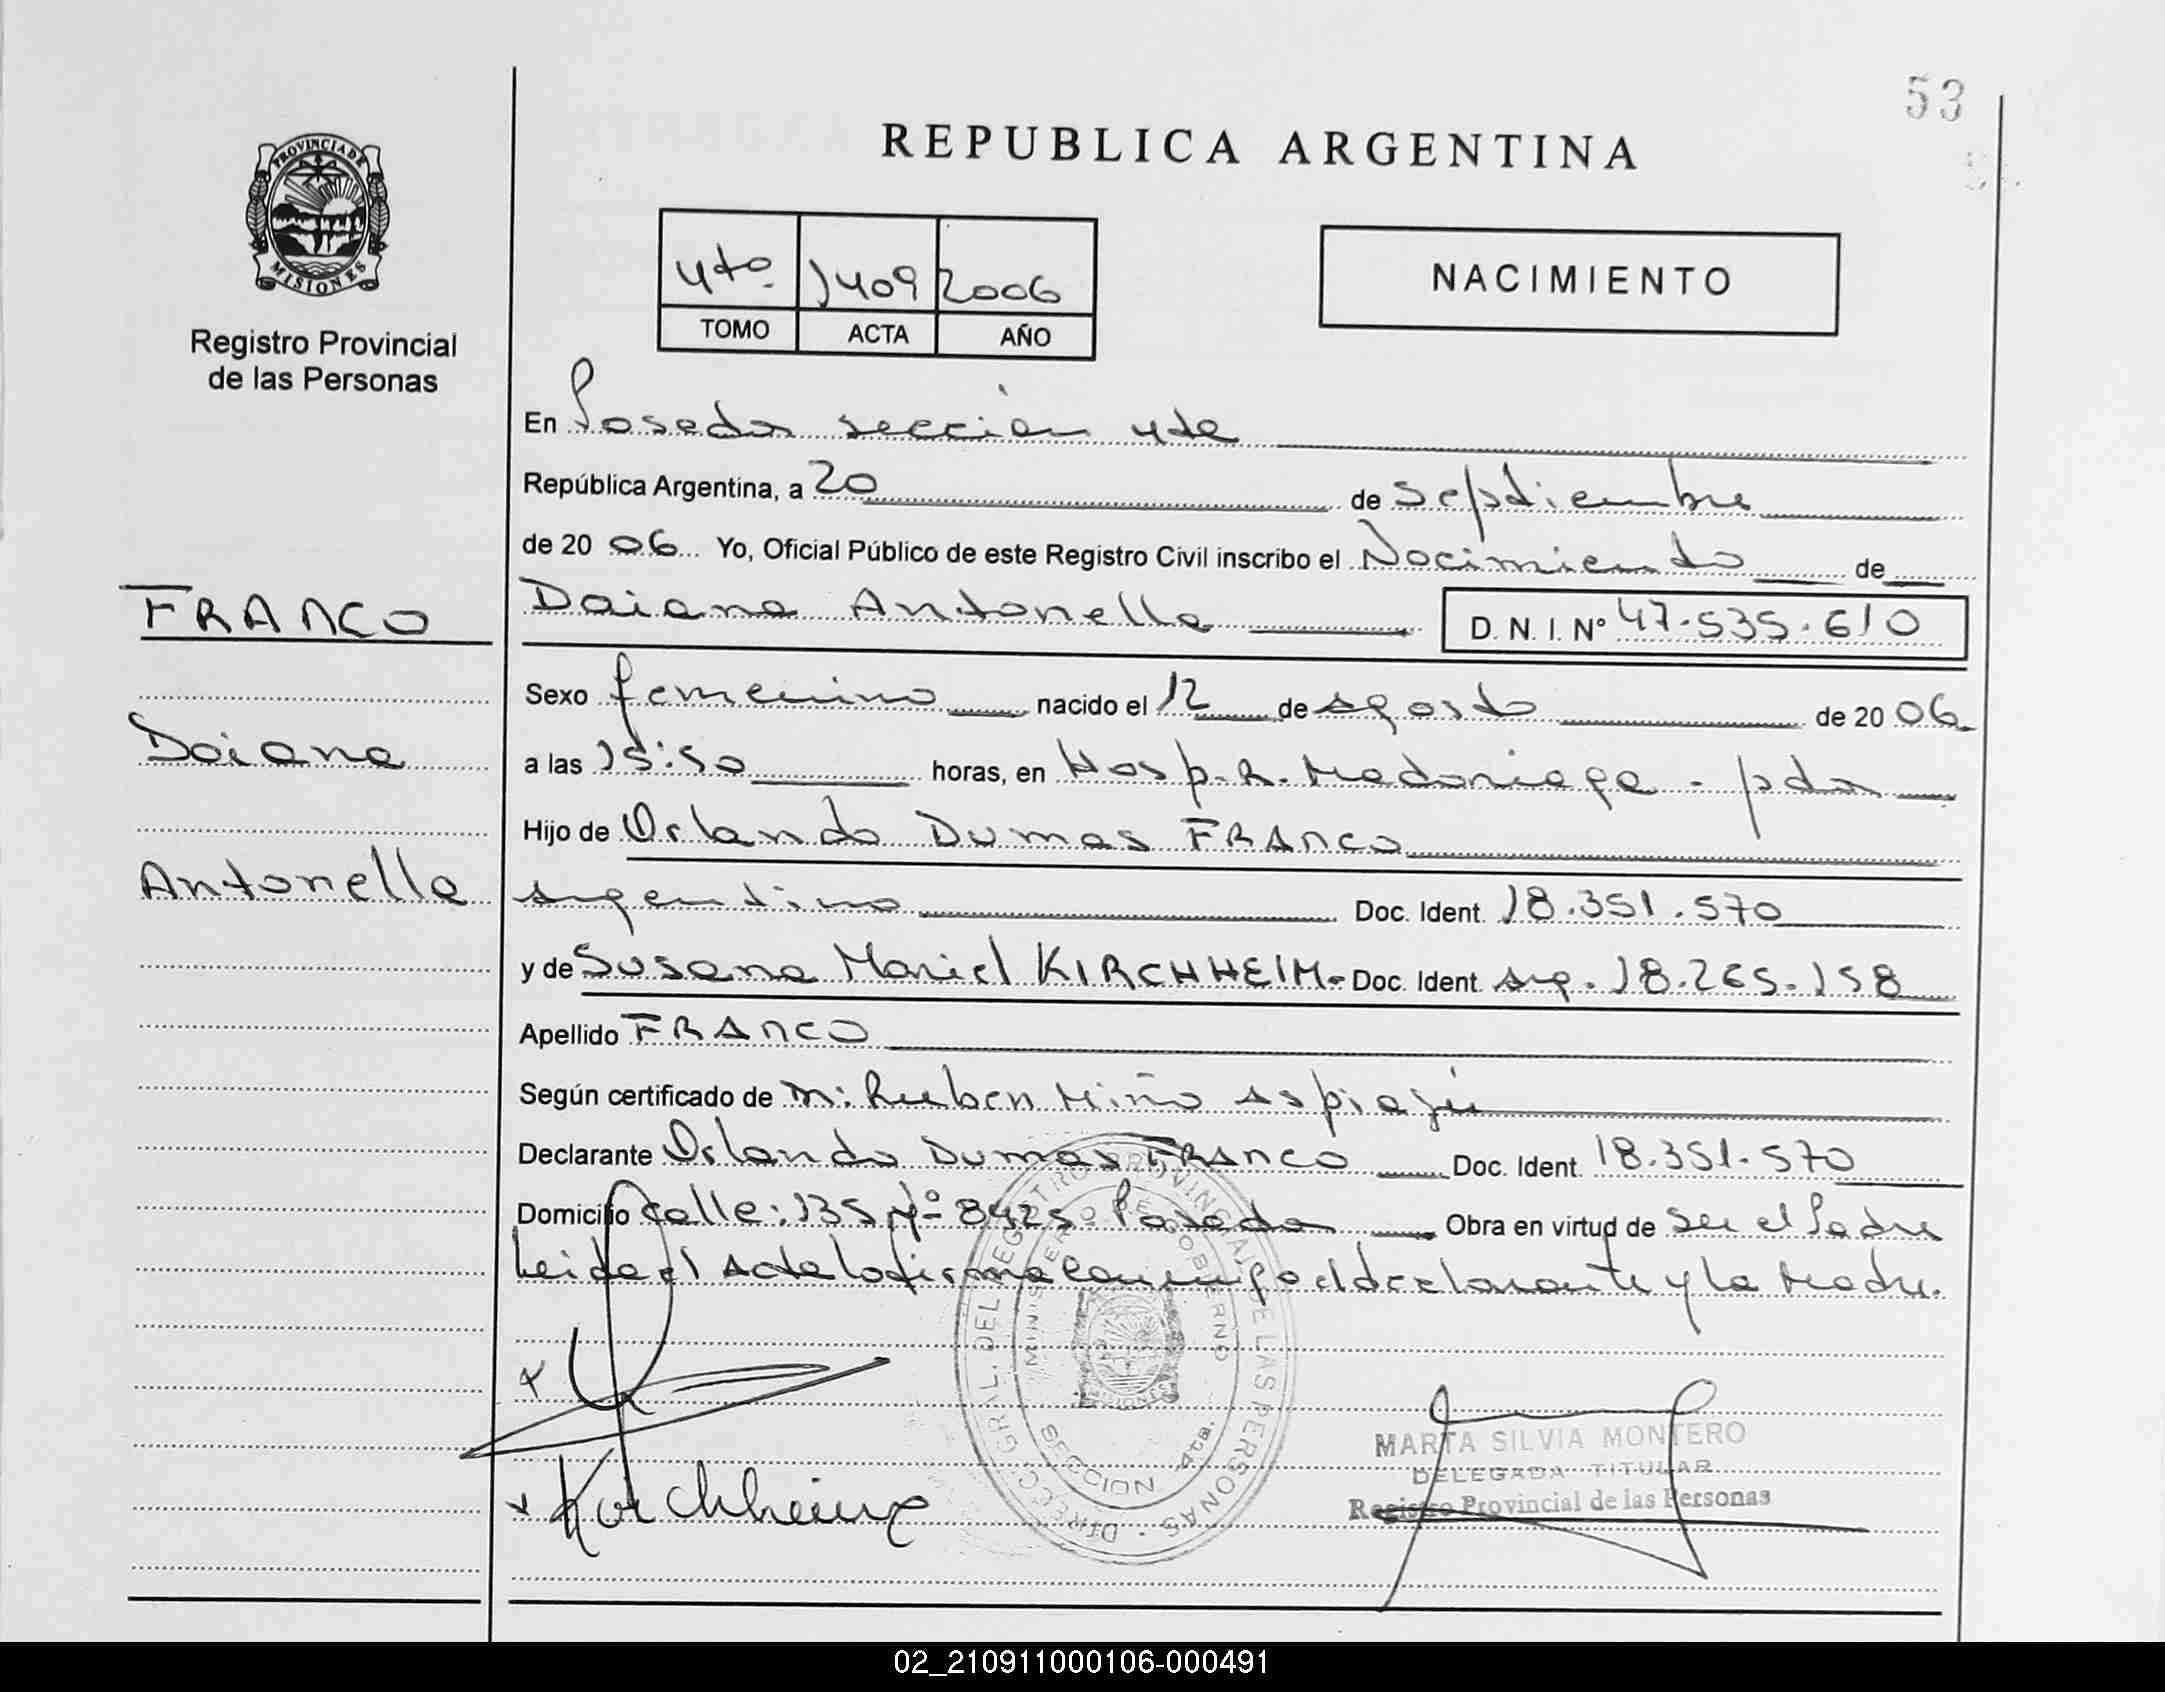 53
REPUBLICA ARGENTINA
PROVINCIA DE MISIONES
Registro Provincial
de las Personas
4to. 1409 2006
TOMO ACTA AÑO
NACIMIENTO
En Posadas sección 4ta
República Argentina, a 20 de septiembre
de 20 06 Yo, Oficial Público de este Registro Civil inscribo el Nacimiento de
FRANCO
Daiana Antonella D. N. I. Nº 47.535.610
Sexo femenino nacido el 12 de agosto de 20 06
Daiana
a las 15:50 horas, en Hosp. R. Madariaga - pdas
Hijo de Orlando Dumas FRANCO
Antonella
argentino Doc. Ident. 18.351.570
y de Susana Mariel KIRCHHEIM- Doc. Ident. arg. 18.265.158
Apellido FRANCO
Según certificado de m: Ruben Miño Aspiajú
Declarante Orlando Dumas FRANCO Doc. Ident. 18.351.570
Domicilio calle: 135 Nº 8425 Posadas Obra en virtud de ser el Padre
Leida el Acta la firma conmigo el declarante y la Madre.
DIRECC. GRAL. DEL REGISTRO PROVINCIAL DE LAS PERSONAS
MINISTERIO DE GOBIERNO
MISIONES
SECCION 4ta.
x
x Kirchheim
MARTA SILVIA MONTERO
DELEGADA TITULAR
Registro Provincial de las Personas
02_210911000106-000491